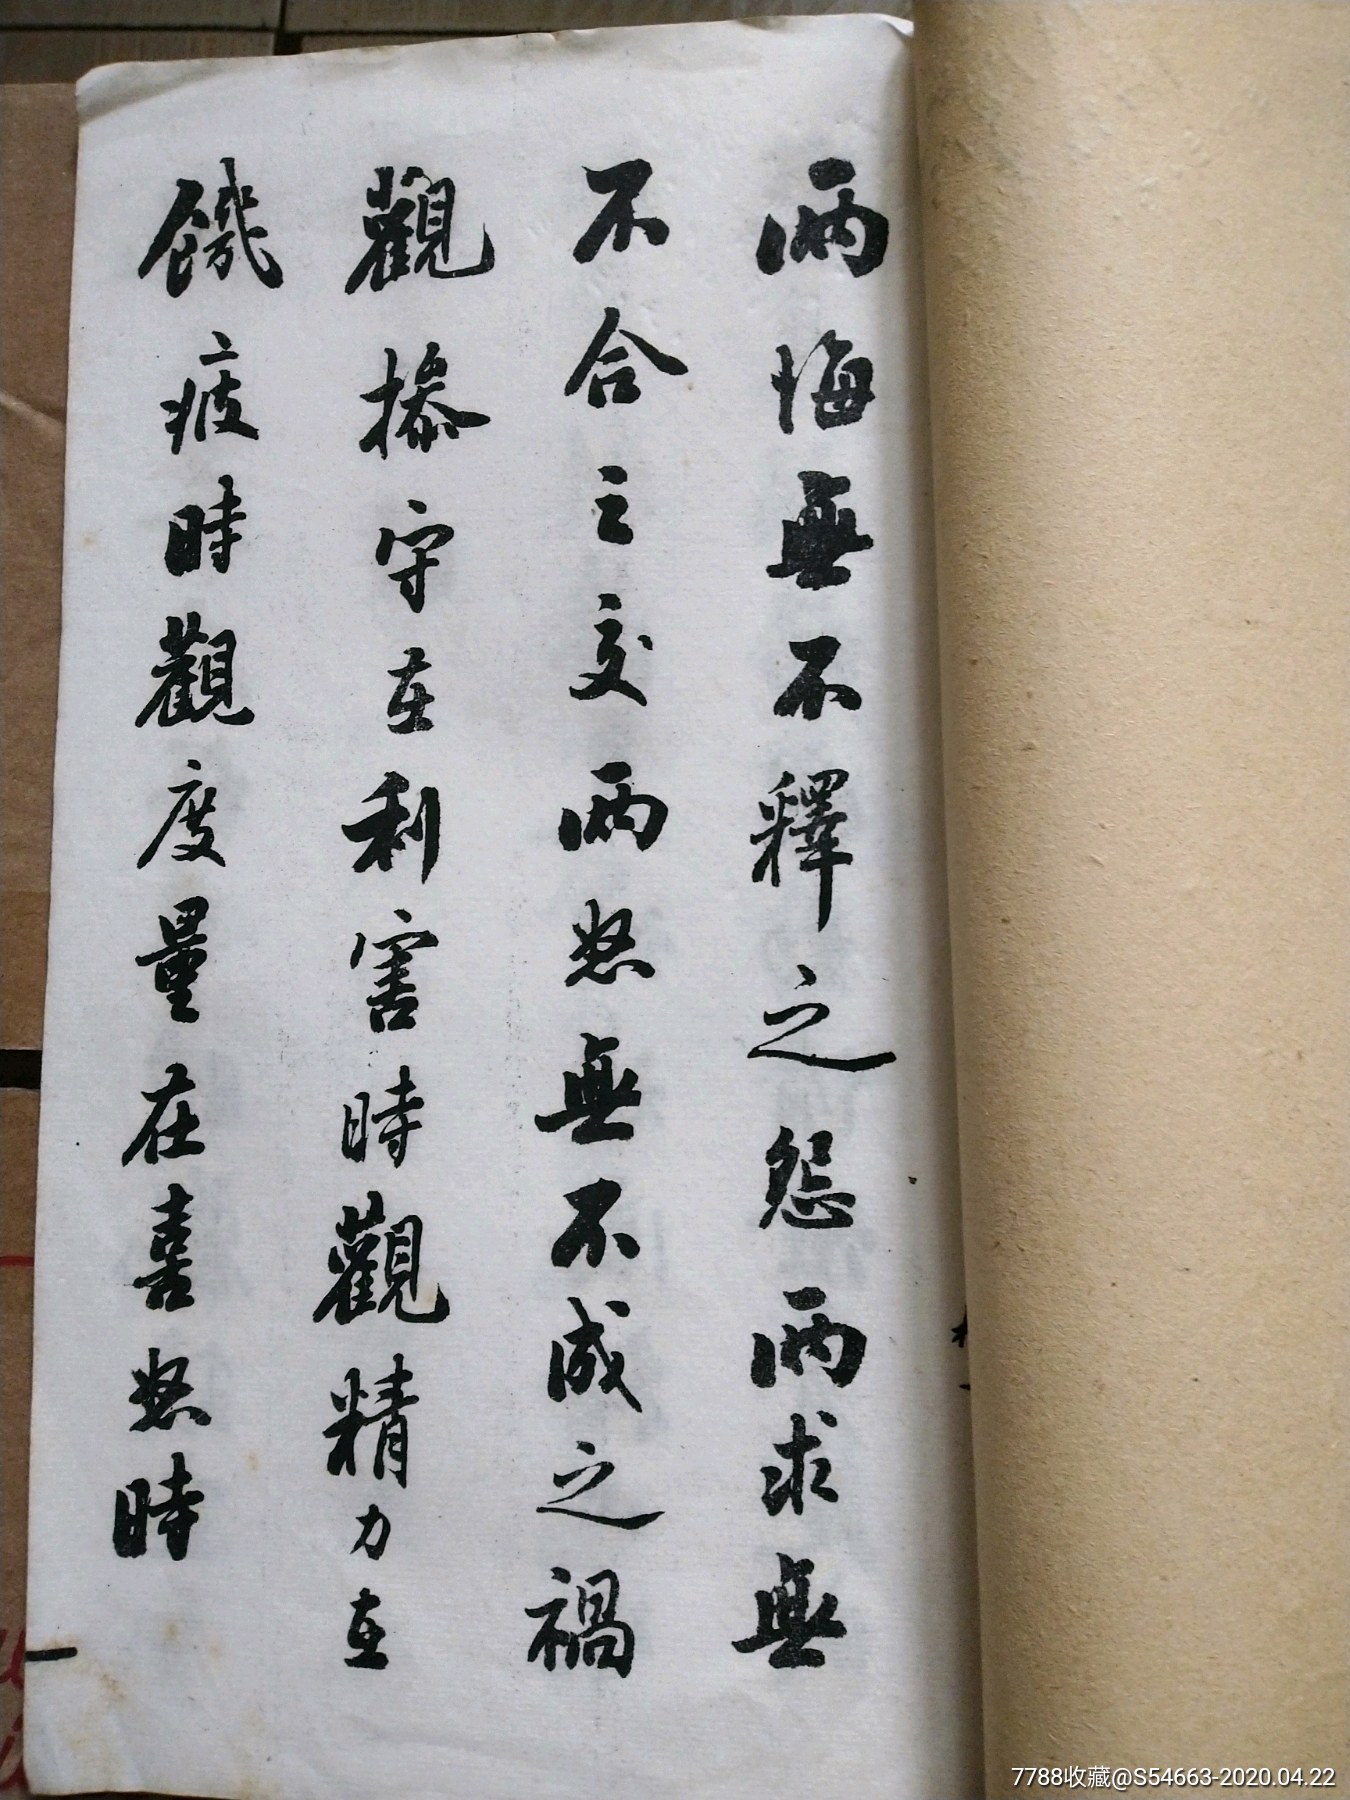 兩悔無不釋之怨兩求無
不合之交兩怒無不成之禍
觀操守在利害時觀精力在
饑疲時觀度量在喜怒時
7788收藏@S54663-2020.04.22